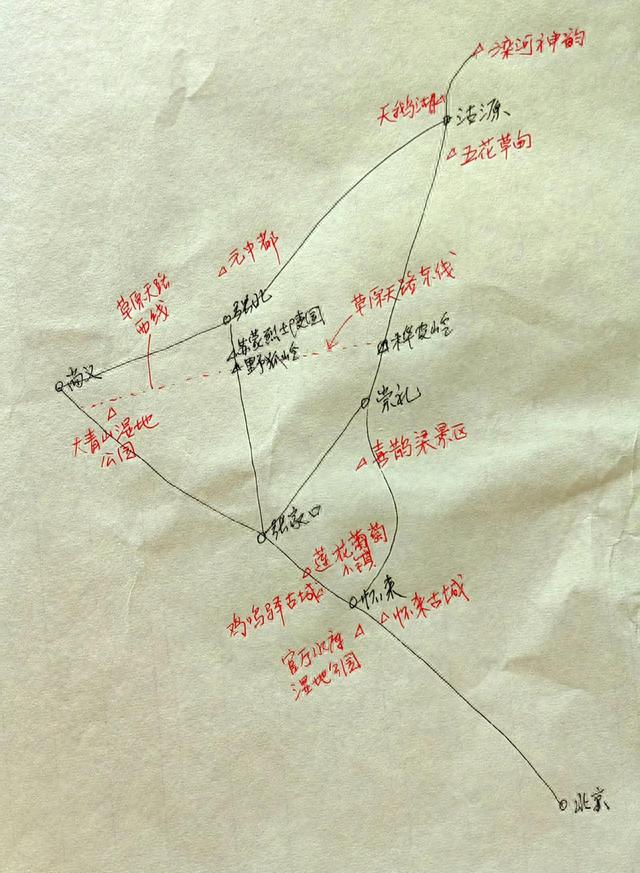 滦河神韵
天鹅湖
沽源
五花草甸
元中都
草原天路
西线
张北
草原天路东线
苏蒙烈士陵园
野狐岭
桦皮岭
尚义
崇礼
大青山湿地
公园
喜鹊梁景区
张家口
莲花葡萄
小镇
鸡鸣驿古城
怀来
怀来古城
官厅水库
湿地公园
北京